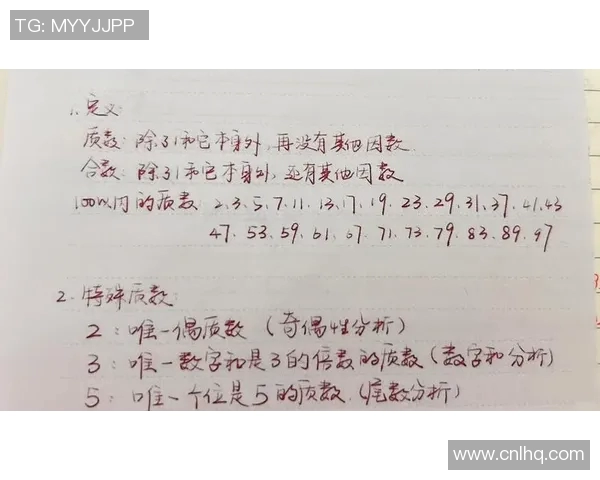 TG: MYYJJPP
1. 定义:
质数: 除了1和它本身外, 再没有其他因数.
合数: 除了1和它本身外, 还有其他因数
100以内的质数: 2、3、5、7、11、13、17、19、23、29、31、37、41、43
47、53、59、61、67、71、73、79、83、89、97
2. 特殊质数:
2: 唯一偶质数 (奇偶性分析)
3: 唯一数字和是3的倍数的质数 (数字和分析)
5: 唯一个位是5的质数. (尾数分析)
www.cnlhq.com